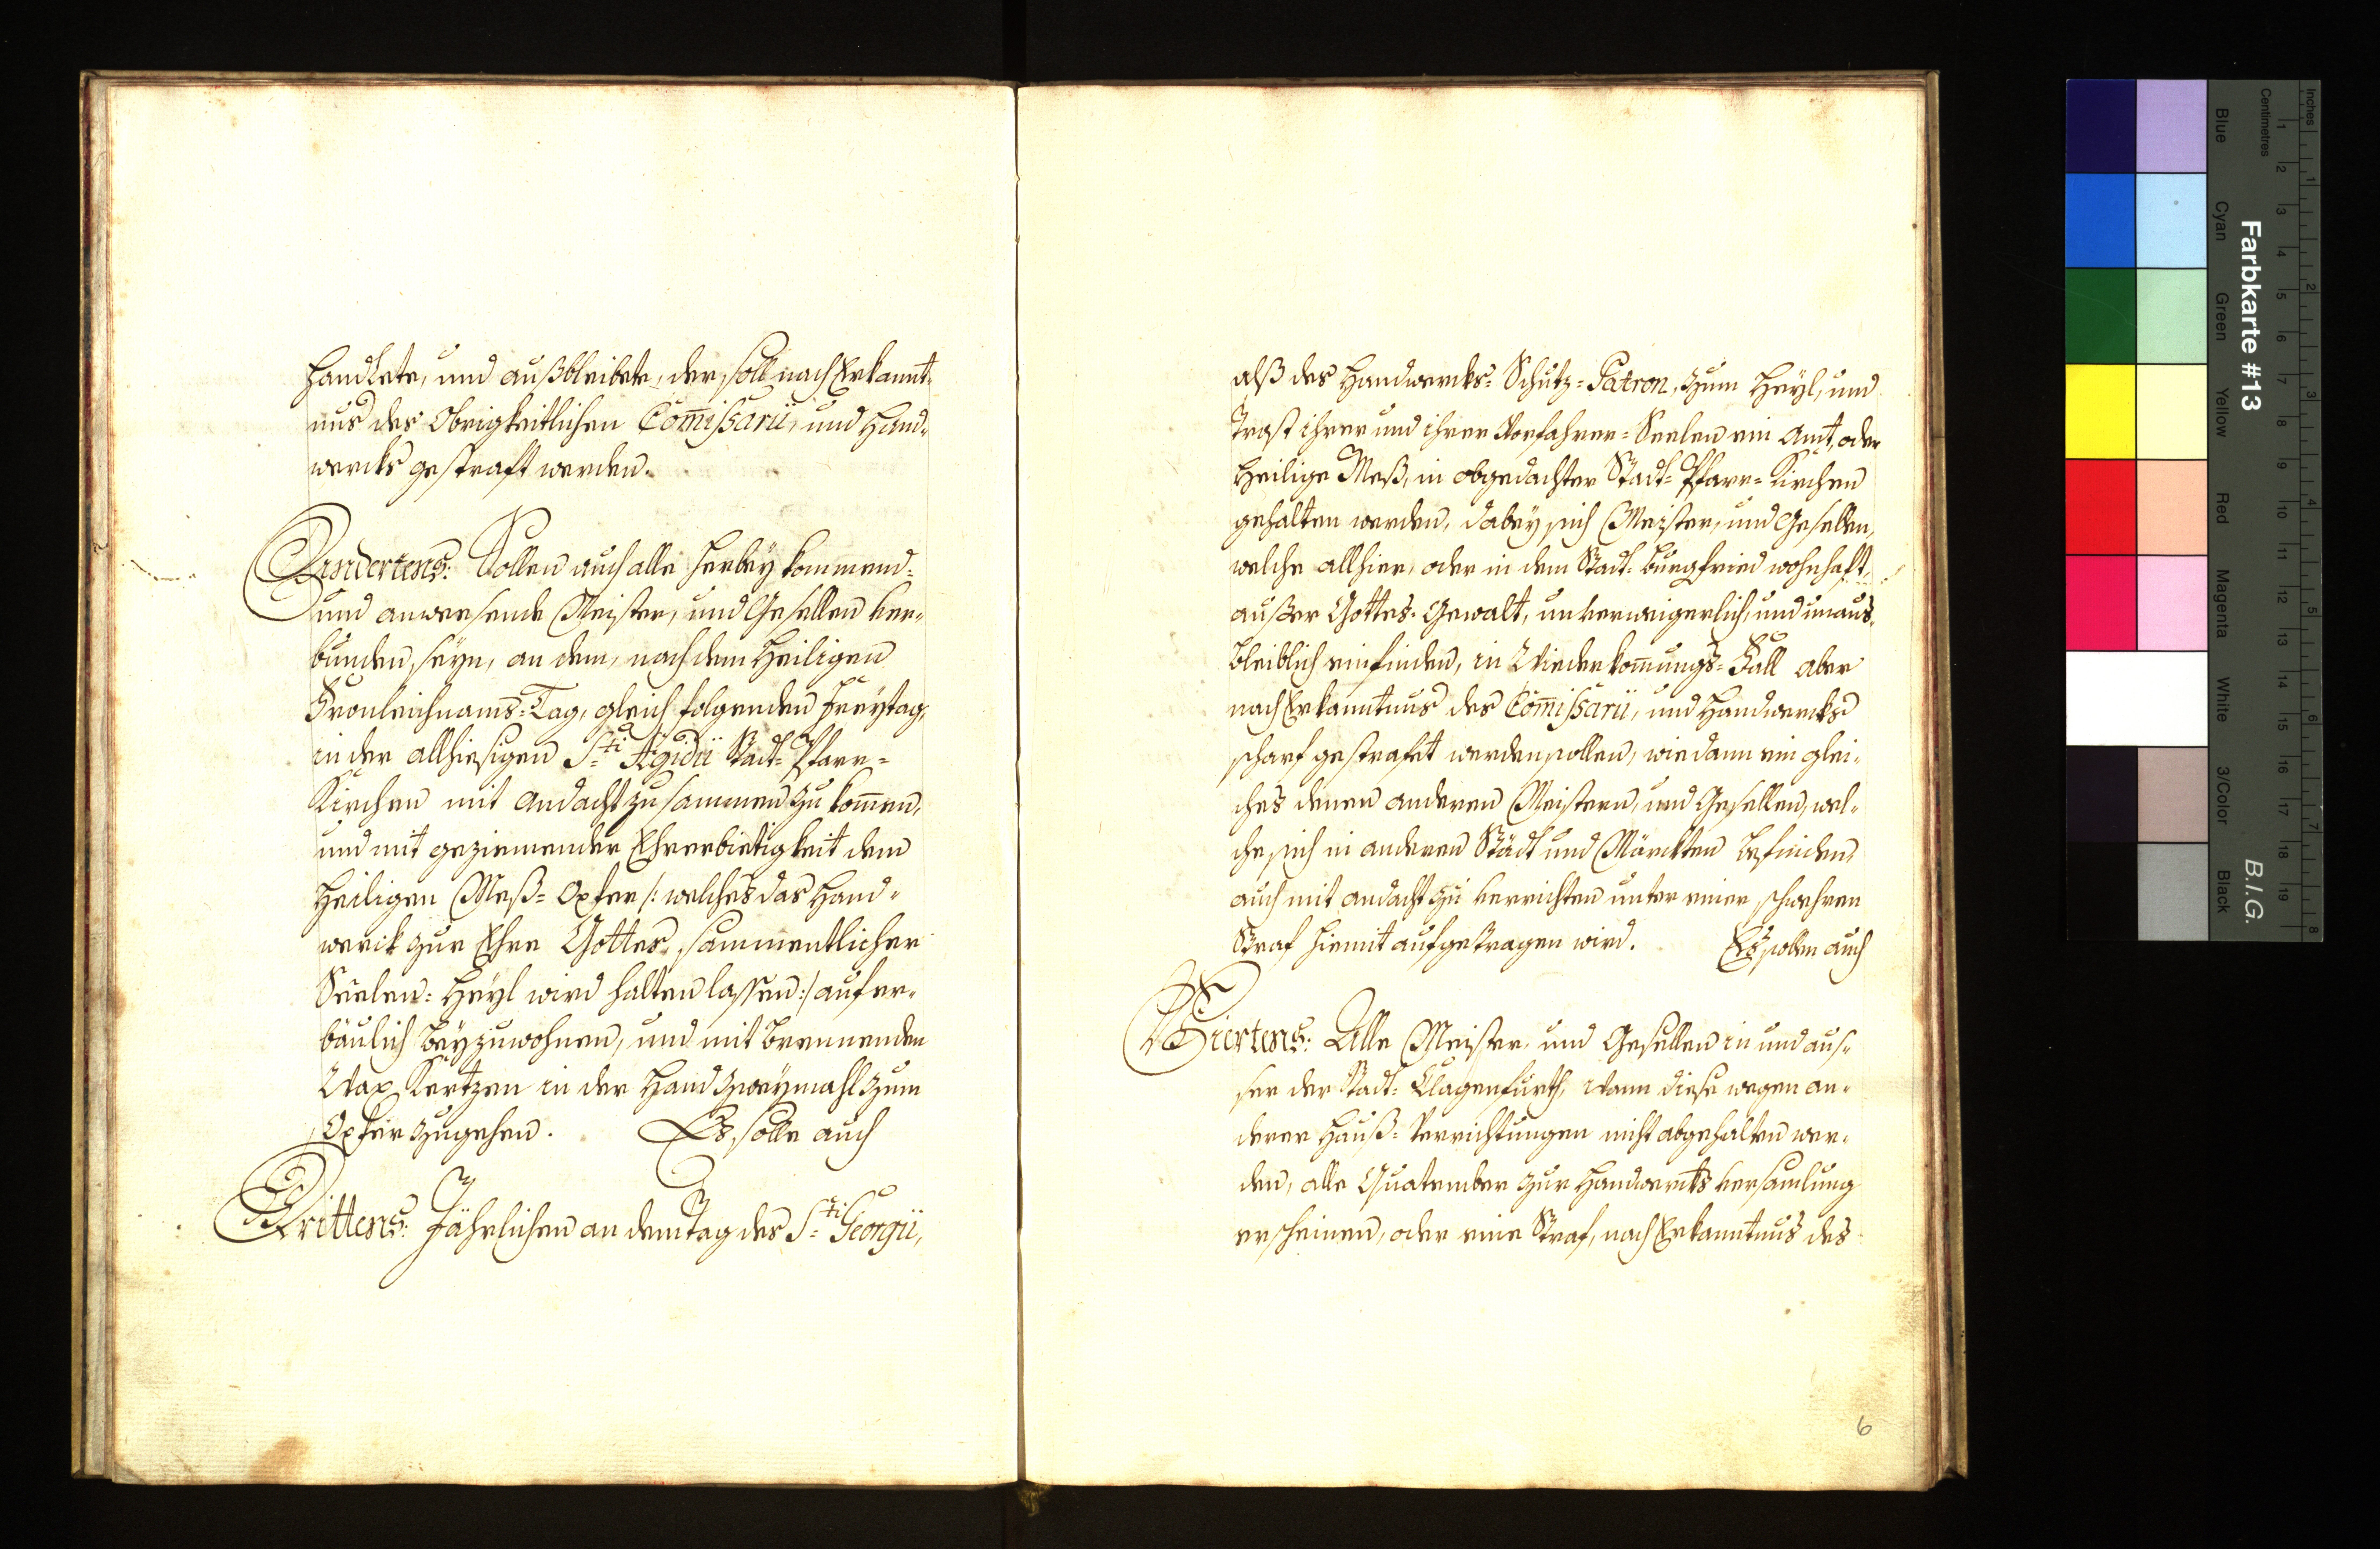 handlete, und außbleibete, der solle nach Erkannt-
nus des Obrigkeitlichen Com̄issarii, und Hand-
wercks gestraft werden.
Andertens: Sollen auch alle herbeÿ kommend-
und anwesende Meister, und Gesellen ver-
bunden seÿn, an dem, nach dem Heiligen
Fronleichnams-Tag, gleich folgenden Freÿtag,
in der allhiesigen S:ti Ægidii Stadt-Pfarr-
Kirchen mit Andacht zusammen zu kom̄en,
und mit geziemender Ehrerbietigkeit dem
Heiligen Meß-Opfer /: welches das Hand-
werck zur Ehre Gottes, sammentlicher
Seelen-Heÿl wird halten lassen :/ aufer-
baulich beÿzuwohnen, und mit brennenden
Wax Kertzen in der Hand zweÿmahl zum
Opfer zugehen. Es solle auch
Drittens: Jährlichen an dem Tag des S:ti Georgii,
alß des Handwercks-Schutz-Patron, zum Heÿl, und
Trost ihrer und ihrer Vorfahrer-Seelen ein Amt, oder
Heilige Meß, in obgedachter Stadt-Pfarr-Kirchen
gehalten werden, dabeÿ sich Meister, und Gesellen,
welche allhier, oder in dem Stadt-Burgfried wohnhaft,
außer Gottes-Gewalt, unverweigerlich, und unaus-
bleiblich einfinden, in Wiederkom̄ungs-Fall aber
nach Erkanntnus des Com̄issarii, und Handwercks
scharf gestrafet werden sollen, wie dann ein glei-
ches denen anderen Meistern, und Gesellen, wel-
che sich in anderen Städt und Märckten befinden,
auch mit Andacht zu verrichten unter einer schwehren
Straf hiemit aufgetragen wird. Es sollen auch
Viertens: Alle Meister und Gesellen in und aus-
ser der Stadt-Clagenfurth, wann diese wegen an-
derer Hauß-Verrichtungen nicht abgehalten wer-
den, alle Quatember zur Handwercks Versam̄lung
erscheinen, oder eine Straf, nach Erkanntnus des
6
Inches
Centimetres
Farbkarte #13
B.I.G.
Blue
Cyan
Green
Yellow
Red
Magenta
White
3/Color
Black